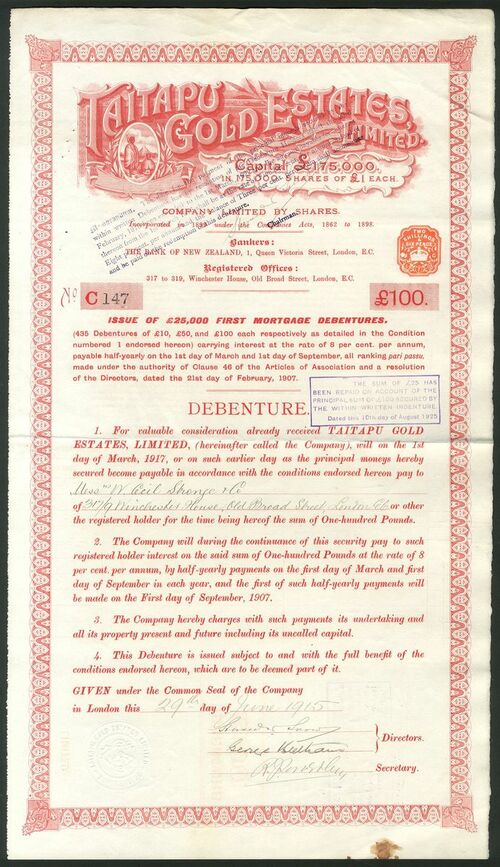 TAITAPU
GOLD ESTATES,
LIMITED.
Capital £175,000.
IN 175,000 SHARES OF £1 EACH.
COMPANY LIMITED BY SHARES.
Incorporated in under the Companies Acts, 1862 to 1898.
Chairman.
Bankers:
THE BANK OF NEW ZEALAND, 1, Queen Victoria Street, London, E.C.
Registered Offices:
317 to 319, Winchester House, Old Broad Street, London, E.C.
TWO
SHILLINGS
SIX PENCE
No C 147 £100.
ISSUE OF £25,000 FIRST MORTGAGE DEBENTURES.
(435 Debentures of £10, £50, and £100 each respectively as detailed in the Condition
numbered 1 endorsed hereon) carrying interest at the rate of 8 per cent. per annum,
payable half-yearly on the 1st day of March and 1st day of September, all ranking pari passu,
made under the authority of Clause 46 of the Articles of Association and a resolution
of the Directors, dated the 21st day of February, 1907.
THE SUM OF £25 HAS
BEEN REPAID ON ACCOUNT OF THE
PRINCIPAL SUM OF £100 SECURED BY
THE WITHIN WRITTEN INDENTURE.
Dated this 10th day of August 1925
DEBENTURE.
1. For valuable consideration already received TAITAPU GOLD
ESTATES, LIMITED, (hereinafter called the Company), will on the 1st
day of March, 1917, or on such earlier day as the principal moneys hereby
secured become payable in accordance with the conditions endorsed hereon pay to
Messrs W. Cecil Stronge & Co
of 317/9 Winchester House, Old Broad Street, London EC or other
the registered holder for the time being hereof the sum of One-hundred Pounds.
2. The Company will during the continuance of this security pay to such
registered holder interest on the said sum of One-hundred Pounds at the rate of 8
per cent. per annum, by half-yearly payments on the first day of March and first
day of September in each year, and the first of such half-yearly payments will
be made on the First day of September, 1907.
3. The Company hereby charges with such payments its undertaking and
all its property present and future including its uncalled capital.
4. This Debenture is issued subject to and with the full benefit of the
conditions endorsed hereon, which are to be deemed part of it.
GIVEN under the Common Seal of the Company
in London this 29th day of June 1915
Directors.
Secretary.